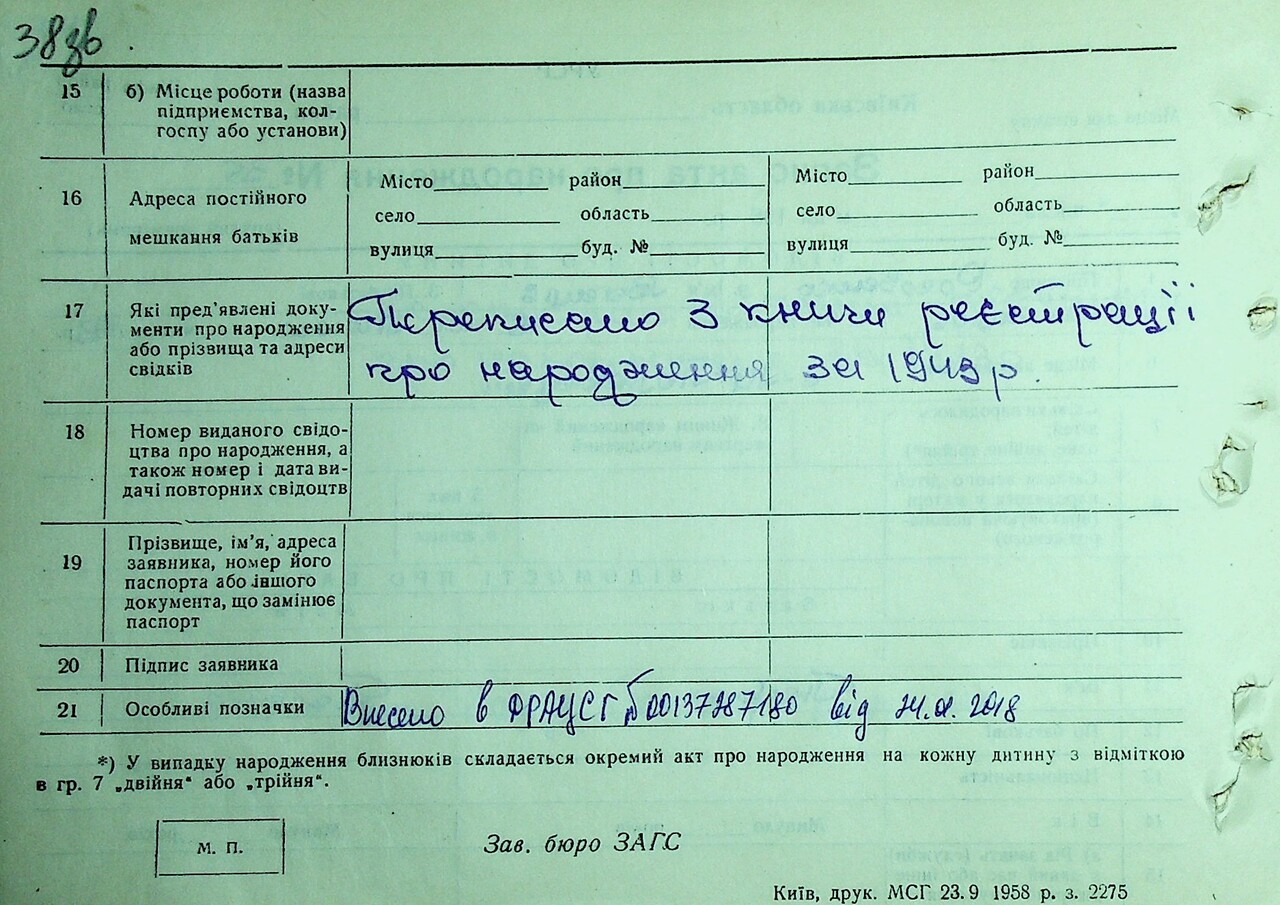 38зв.
15 б) Місце роботи (назва
підприємства, кол-
госпу або установи)
16 Адреса постійного
мешкання батьків
Місто район
село область
вулиця буд. №
Місто район
село область
вулиця буд. №
17 Які пред'явлені доку-
менти про народження
або прізвища та адреси
свідків
Переписано з книги реєстрації
про народження за 1943 р.
18 Номер виданого свідо-
цтва про народження, а
також номер і дата ви-
дачі повторних свідоцтв
19 Прізвище, ім'я, адреса
заявника, номер його
паспорта або іншого
документа, що замінює
паспорт
20 Підпис заявника
21 Особливі позначки
Внесено в ФРАЦСГ від 2018
*) У випадку народження близнюків складається окремий акт про народження на кожну дитину з відміткою
в гр. 7 „двійня“ або „трійня“.
м. п.
Зав. бюро ЗАГС
Київ, друк. МСГ 23.9 1958 р. з. 2275